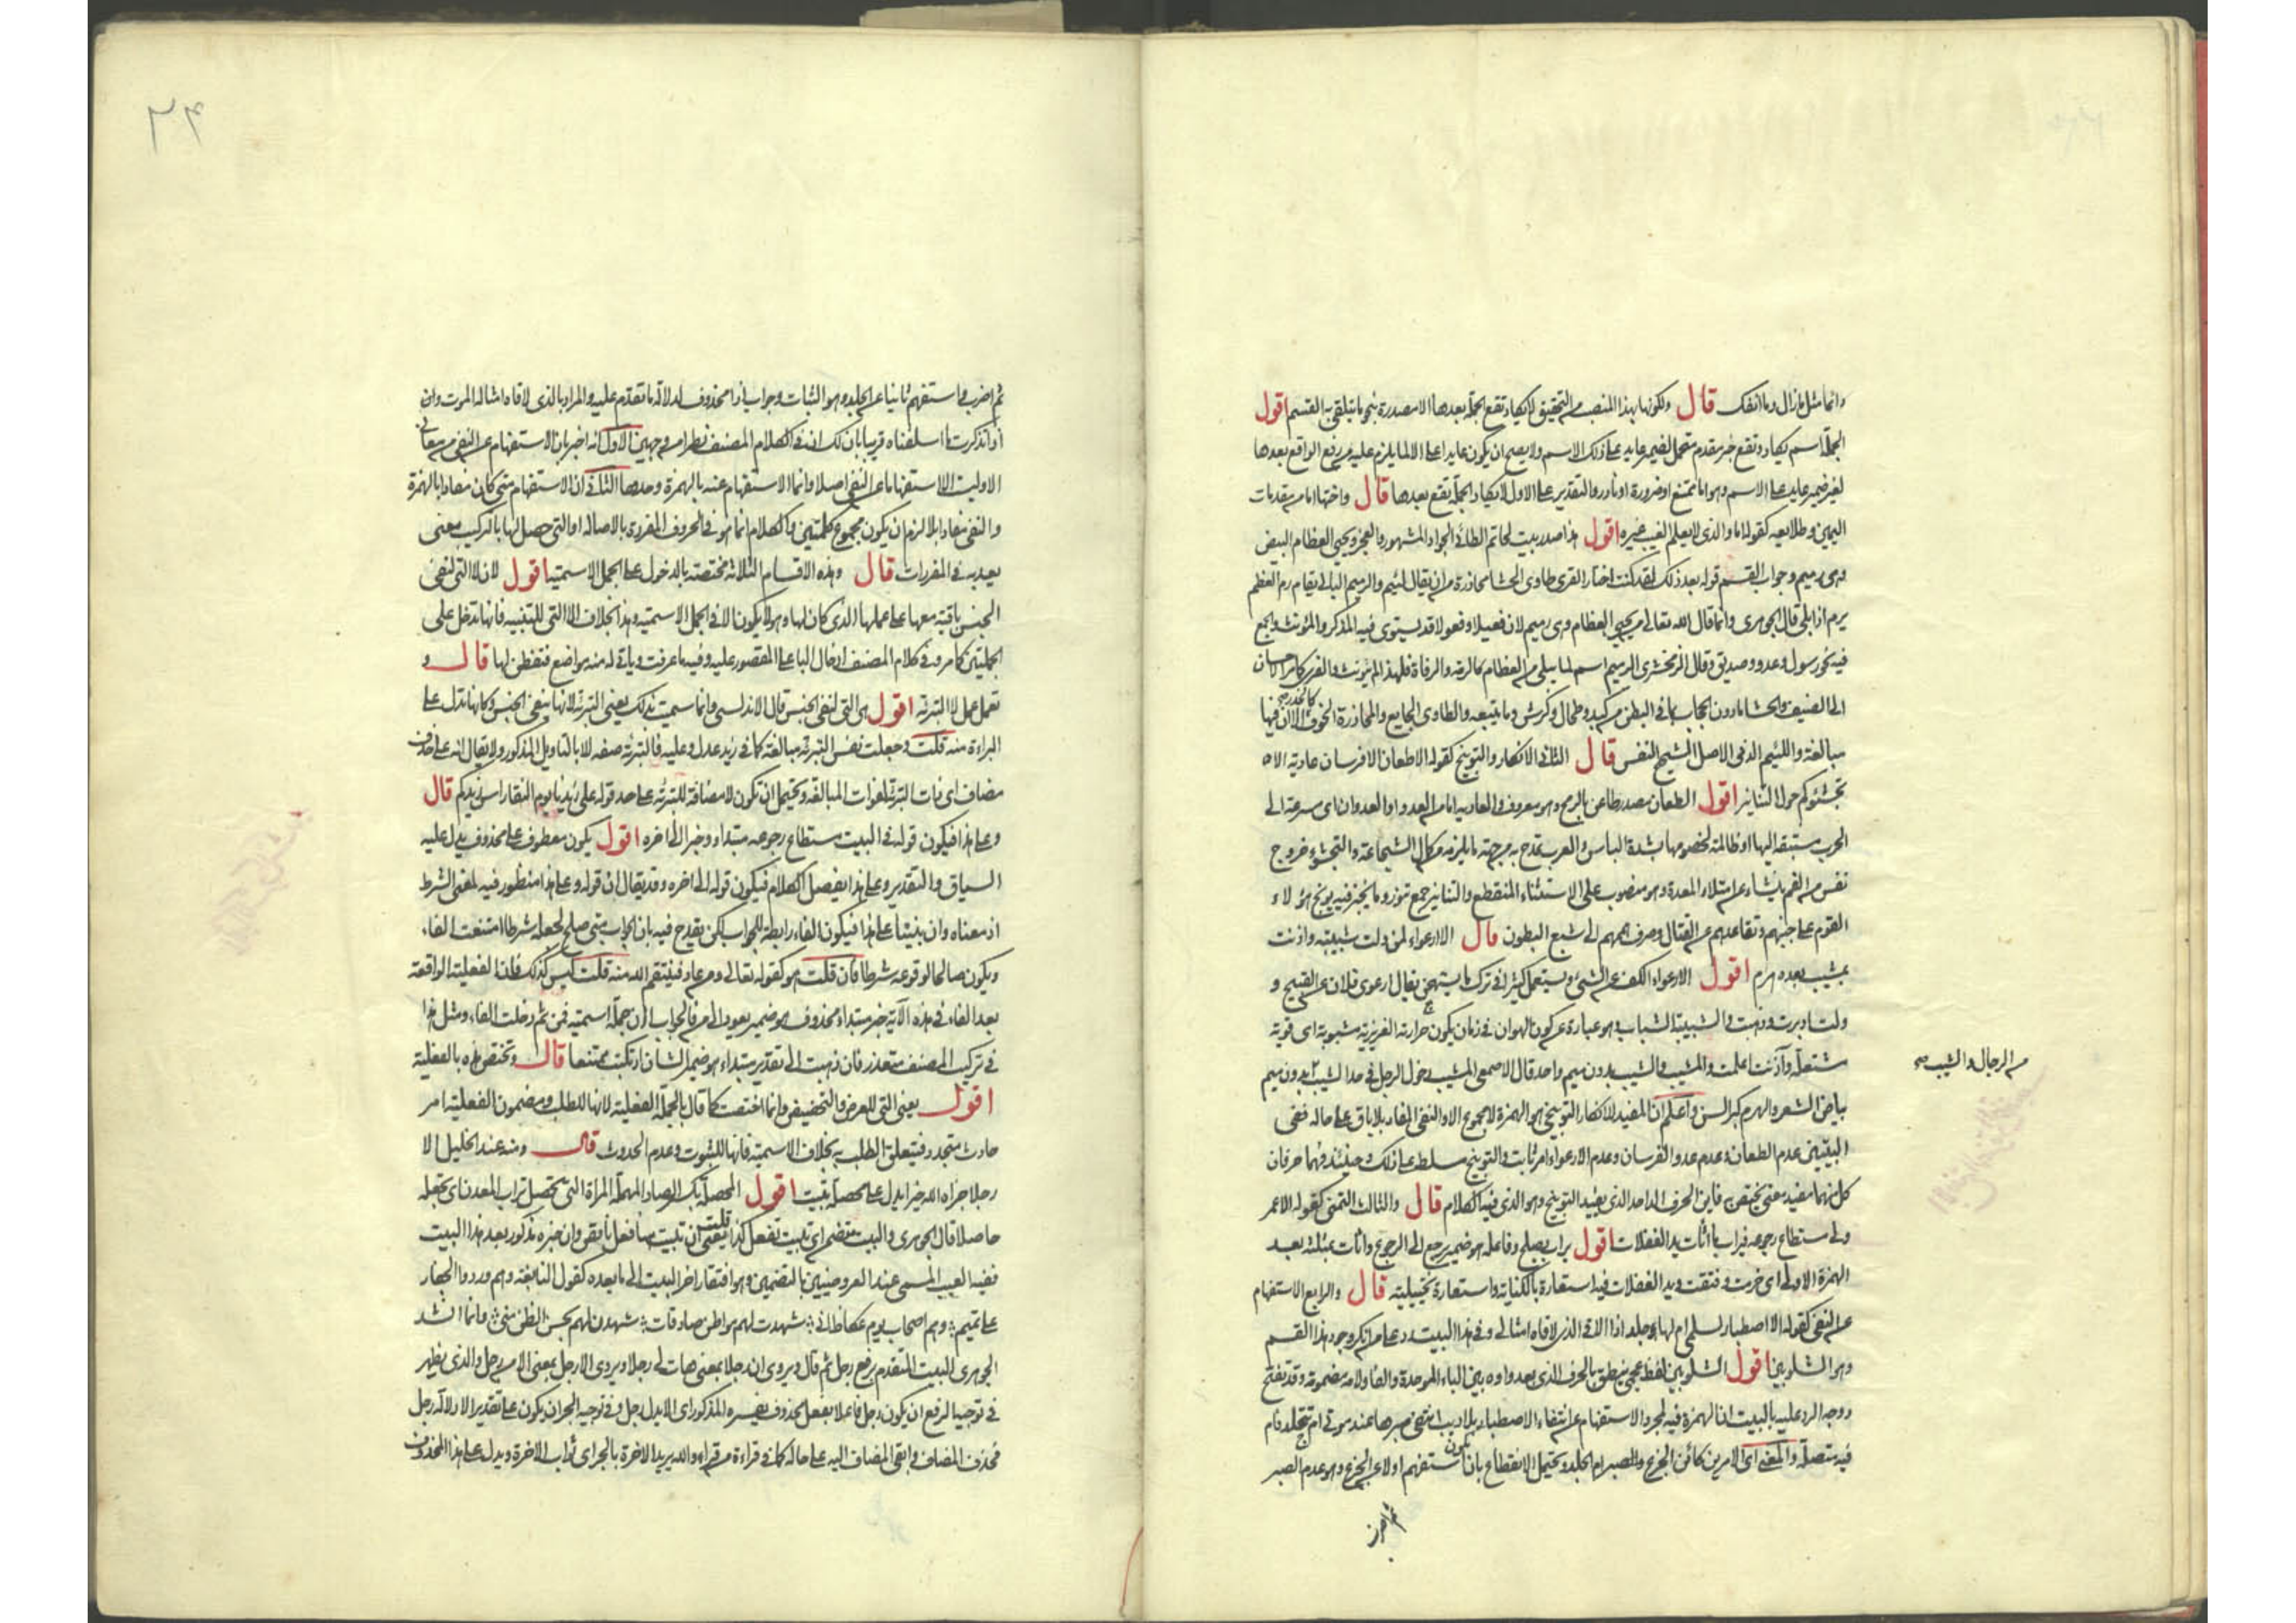 وانما مثل ما زال وما انفك قال ولكونها بهذا المنصب من التحقيق لا يكاد تقع الجملة بعدها الا مصدرة بنحو ما يتلقى به القسم اقول
الجملة اسم يكاد وتقع خبر مقدم متحمل لضمير عايد على ذلك الاسم ولا يصح ان يكون عايدا على الا لما يلزم عليه من رفع الواقع بعدها
لغير ضمير عايد على الاسم وهو اما ممتنع او ضرورة او نادر والتقدير على الاول لا يكاد الجملة تقع بعدها قال واختها اما من مقدمات
اليمين وطلايعه كقوله اما والذي لا يعلم الغيب غيره اقول هذا صدر بيت لحاتم الطائي الجواد المشهور والعجز ويحيي العظام البيض
وهي رميم وجواب القسم قوله بعد ذلك لقد كنت اختار القرى طاوي الحشا محاذرة من ان يقال لئيم والرميم البالي يقام رم العظم
يرم اذا بلي قال الجوهري وانما قال الله تعالى من يحيي العظام وهي رميم لان فعيلا وفعولا قد يستوي فيه المذكر والمؤنث والجمع
فيه نحو رسول وعدو وصديق وقال الزمخشري الرميم اسم لما يبلى من العظام كالرمة والرفاة فلهذا لم يؤنث والقرى كالاحسان
الى الضيف والحشا ما دون الحجاب مما في البطن من كبد وطحال وكرش وما يتبعه والطاوي الجايع والمحاذرة الخوف كالحذر الا ان فيها
مبالغة واللئيم الدني الاصل الشحيح النفس قال الثاني الانكار والتوبيخ كقوله الا طعان الا فرسان عادية الا
تجشئوكم حول التنانير اقول الطعان مصدر طاعن بالرمح وهو معروف والعادية اما من العدو او العدوان اي سرعة الى
الحرب مستبقة اليها او ظالمة لخصومها بشدة الباس والعرب تمدح به من جهة ما يلزمه من كمال الشجاعة والتجشؤ خروج
نفس من الفم ينشاء عن امتلاء المعدة وهو منصوب على الاستثناء المنقطع والتنانير جمع تنور وما يخبز فيه يوبخ هؤلاء
القوم على جبنهم وتقاعدهم عن القتال وصرف هممهم الى شبع البطون قال الا ارعواء لمن ولت شبيبته واذنت
بمشيب بعده هرم اقول الارعواء الكف عن الشئ ويستعمل كثيرا في ترك ما يستهجن يقال ارعوى فلان عن القبيح و
ولت ادبرت وذهبت والشبيبة الشباب وهو عبارة عن كون الحيوان في زمان يكون حرارته الغريزية مشبوبة اي قوية
مشتعلة وآذنت اعلمت والمشيب والشيب بدون ميم واحد قال الاصمعي المشيب دخول الرجل في حد الشيب بدون ميم
من الرجال والشيب صح
بياض الشعر والهرم كبر السن واعلم ان المفيد للانكار التوبيخي هو الهمزة لا مجموع الا والنفي المفاد بلا باق على حاله ففي
البيتين عدم الطعان وعدم عدو الفرسان وعدم الارعواء امر ثابت والتوبيخ مسلط على ذلك وحينئذ فهما حرفان
كل منهما مفيد معنى يختص به فاين الحرف الواحد الذي يفيد التوبيخ وهو الذي فيه الكلام قال والثالث التمني كقوله الا عمر
ولى مستطاع رجوعه فيراب ما اثأت يد الغفلات اقول يراب يصلح وفاعله هو ضمير يرجع الى الرجوع واثأت بمثلثة بعد
الهمزة الاولى اي خرمت وفتقت ويد الغفلات فيه استعارة بالكناية واستعارة تخييلية قال والرابع الاستفهام
عن النفي كقوله الا اصطبار لسلمى ام لها جلد اذا الاقي الذي لاقاه امثالي وفي هذا البيت رد على من انكر وجود هذا القسم
وهو الشلوبين اقول الشلوبين لفظ عجمي ينطق بالحرف الذي بعد واوه بين الباء الموحدة والفا ولامه مضمومة وقد تفتح
ووجه الرد عليه بالبيت ان الهمزة فيه لمجرد الاستفهام عن انتفاء الاصطبار بلا ريب انتفى صبرها عند موتي ام تتجلد فام
فيه متصلة والمعنى اي الامرين كائن الجزع والصبر ام الجلد ويحتمل الانقطاع بان يكون استفهم اولا عن الجزع وهو عدم الصبر
ثم اضرب
٢٤
ثم اضرب واستفهم ثانيا عن الجلد وهو الثبات وجواب اذا محذوف لدلالة ما تقدم عليه والمراد بالذي لاقاه امثاله الموت وان
اذا تذكرت ما اسلفناه قريبا بان لك ان في كلام المصنف نظرا من وجهين الاول انه اخبر بان الاستفهام عن النفي من معاني
الا وليت الا استفهاما عن النفي اصلا وانما الاستفهام عنه بالهمزة وحدها الثاني ان الاستفهام متى كان مفادا بالهمزة
والنفي مفادا بلا لزم ان يكون مجموع كلمتين والكلام انما هو في الحروف المفردة بالاصالة او التي حصل لها بالتركيب معنى
يعد به في المفردات قال وهذه الاقسام الثلاثة مختصة بالدخول على الجمل الاسمية اقول لان لا التي لنفي
الجنس باقية معها على عملها الذي كان لها وهو لا يكون الا في الجمل الاسمية وهذا بخلاف الا التي للتنبيه فانها تدخل على
الجملتين كما مر وفي كلام المصنف ادخال الباء على المقصور عليه وفيه ما عرفت وياتي له منه مواضع فتفطن لها قال و
تعمل عمل لا التبرئة اقول هي التي لنفي الجنس قال الاندلسي وانما سميت بذلك يعني التبرئة لانها نفي الجنس وكانها تدل على
البراءة منه قلت وجعلت نفس التبرئة مبالغة كما في زيد عدل وعليه فالتبرئة صفة للا بالتاويل المذكور ولا يقال انه على حذف
مضاف اي ذات التبرئة لفوات المبالغة ويحتمل ان تكون لا مضافة للتبرئة على حد قوله على زيدنا يوم النقا راس زيدكم قال
وعلى هذا فيكون قوله في البيت مستطاع رجوعه مبتداء وخبر الى اخره اقول يكون معطوف على محذوف يدل عليه
السياق والتقدير وعلى هذا ينفصل الكلام فيكون قوله الى اخره وقد يقال ان قوله وعلى هذا منظور فيه لمعنى الشرط
اذ معناه وان بنينا على هذا فيكون الفاء رابطة للجواب لكن يقدح فيه بان الجواب متى صلح لجعله شرطا امتنعت الفاء
ويكون صالحا لوقوعه شرطا فان قلت هو كقوله تعالى ومن عاد فينتقم الله منه قلت ليس كذلك فان الفعلية الواقعة
بعد الفاء في هذه الآية خبر مبتداء محذوف هو ضمير يعود الى من فالجواب اذن جملة اسمية فمن ثم دخلت الفاء ومثل هذا
في تركيب المصنف متعذر فان ذهبت الى تقدير مبتداء هو ضمير الشان ارتكبت ممتنعا قال وتختص هذه بالفعلية
اقول يعني التي للعرض والتحضيض وانما اختصت كما قال بالجملة الفعلية لانها للطلب ومضمون الفعلية امر
حادث متجدد فيتعلق الطلب به بخلاف الاسمية فانها للثبوت وعدم الحدوث قال ومنه عند الخليل الا
رجلا جزاه الله خيرا يدل على محصلة تبيت اقول المحصلة بكسر الصاد المهملة المراة التي تحصل تراب المعدن اي تجعله
حاصلا قال الجوهري والبيت متضمن اي تبيت تفعل كذا قلت يعني ان تبيت هنا فعل ناقص وان خبره مذكور بعد هذا البيت
ففيه العيب المسمى عند العروضيين بالتضمين وهو افتقار اخر البيت الى ما بعده كقول النابغة وهم وردوا الجفار
على تميم وهم اصحاب يوم عكاظ اني شهدت لهم مواطن صادقات شهدن لهم بحسن الظن مني وانما انشد
الجوهري البيت المتقدم برفع رجل ثم قال ويروى ان رجلا بمعنى هات لي رجلا ويروى الا رجل بمعنى الا من رجل والذي يظهر
في توجيه الرفع ان يكون رجل فاعلا بفعل محذوف يفسره المذكور اي الا يدل رجل وفي توجيه الجر ان يكون على تقدير الا دلالة رجل
فحذف المضاف وابقى المضاف اليه على حاله كما في قراءة من قراء والله يريد الاخرة بالجر اي ثواب الاخرة ويدل على هذا المحذوف